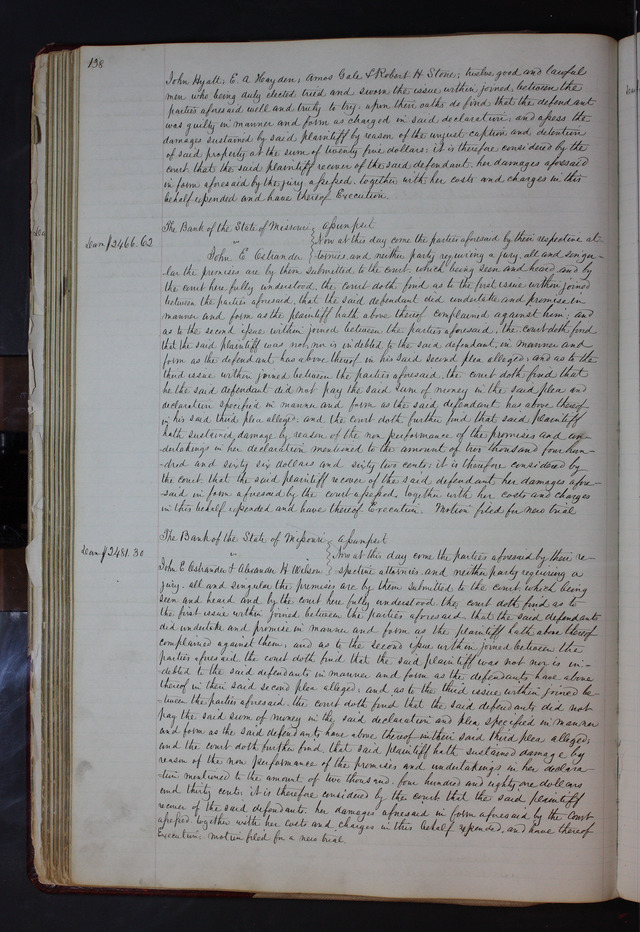 138
John Hyatt, E. A Hayden, Amos Cale & Robert H Stone; twelve good and lawful
men who being duly elected tried and sworn the issue within joined between the
parties aforesaid well and truly to try: upon their oaths do find that the defendant
was guilty in manner and form as charged in said declaration, and assess the
damages sustained by said plaintiff by reason of the unjust caption and detention
of said property at the sum of twenty five dollars: it is therefore considered by the
court that the said plaintiff recover of the said defendant her damages aforesaid
in form aforesaid by the jury assessed, together with her costs and charges in this
behalf expended and have thereof Execution.
The Bank of the State of Missouri } Assumpsit
Dam $2466.62
Now at this day come the parties aforesaid by their respective at-
John E Ostrander } tornies and neither party requiring a jury, all and singu-
lar the premises are by them submitted to the court, which being seen and heard and by
the court here fully understood, the court doth find as to the first issue within joined
between the parties aforesaid, that the said defendant did undertake and promise in
manner and form as the plaintiff hath above thereof complained against him; and
as to the second issue within joined between the parties aforesaid, the court doth find
that the said plaintiff was not, nor is indebted to the said defendant, in manner and
form as the defendant has above thereof in his said second plea alleged; and as to the
third issue within joined between the parties aforesaid, the court doth find that
he the said defendant did not pay the said sum of money in the said plea and
declaration specified in manner and form as the said defendant has above thereof
in his said third plea alleged; and the court doth further find that said plaintiff
hath sustained damage by reason of the non performance of the promises and un-
dertakings in her declaration mentioned to the amount of two thousand four hun-
dred and sixty six dollars and sixty two cents; it is therefore considered by
the court that the said plaintiff recover of the said defendant her damages afore-
said in form aforesaid by the court assessed, together with her costs and charges
in this behalf expended and have thereof Execution. Motion filed for new trial
The Bank of the State of Missouri } Assumpsit
Dam $2481.30
Now at this day come the parties aforesaid by their re-
John E Ostrander & Alexander H Wilson } spective attornies and neither party requiring a
jury, all and singular the premises are by them submitted to the court, which being
seen and heard and by the court here fully understood, the court doth find as to
the first issue within joined between the parties aforesaid, that the said defendants
did undertake and promise in manner and form as the plaintiff hath above thereof
complained against them; and as to the second issue within joined between the
parties aforesaid the court doth find that the said plaintiff was not nor is in-
debted to the said defendants in manner and form as the defendants have above
thereof in their said second plea alleged, and as to the third issue within joined be-
tween the parties aforesaid, the court doth find that the said defendants did not
pay the said sum of money in the said declaration and plea specified in manner
and form as the said defendants have above thereof in their said third plea alleged;
and the court doth further find, that said plaintiff hath sustained damage by
reason of the non performance of the promises and undertakings in her declara-
tion mentioned to the amount of two thousand four hundred and eighty one dollars
and thirty cents; it is therefore considered by the court that the said plaintiff
recover of the said defendants her damages aforesaid in form aforesaid by the Court
assessed, together with her costs and charges in this behalf expended, and have thereof
Execution. motion filed for a new trial.